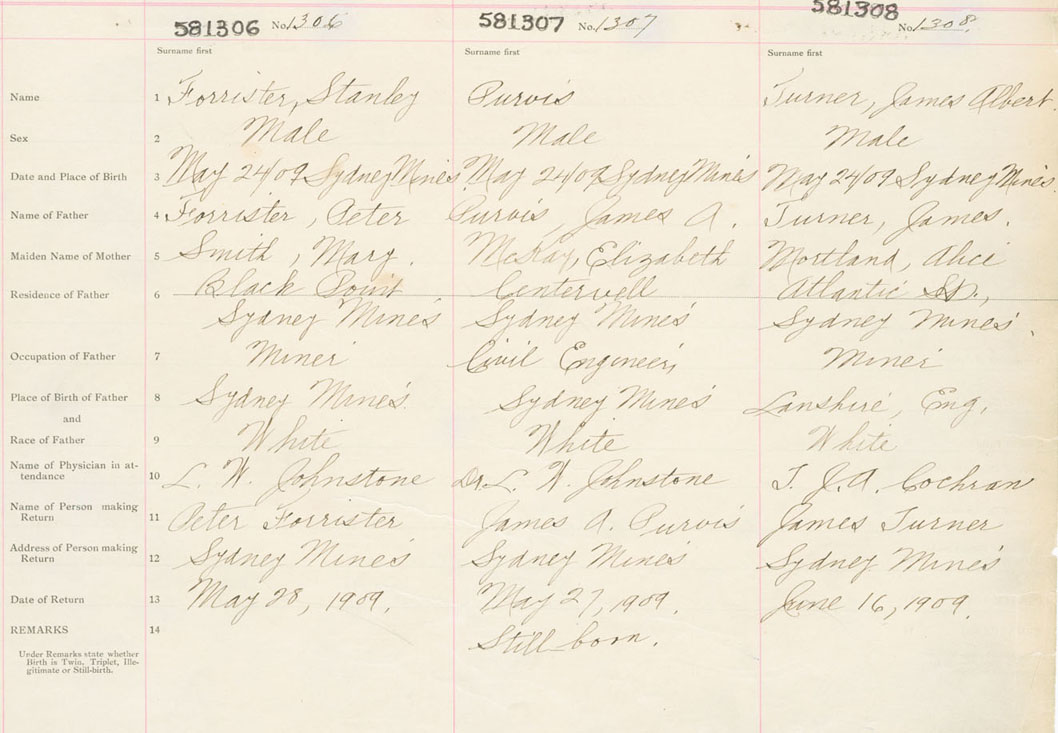 581306 No. 1306 581307 No. 1307 581308 No. 1308
Surname first Surname first Surname first
Name 1 Forrister, Stanley Purvis Turner, James Albert.
Sex 2 Male Male Male
Date and Place of Birth 3 May 24/09 Sydney Mines May 24/09 Sydney Mines May 24/09 Sydney Mines.
Name of Father 4 Forrister, Peter Purvis, James A. Turner, James.
Maiden Name of Mother 5 Smith, Mary. McKay, Elizabeth Mortland, Alice
Residence of Father 6 Black Point Centervell Atlantic St.,
Sydney Mines Sydney Mines Sydney Mines.
Occupation of Father 7 Miner Civil Engineer, Miner
Place of Birth of Father 8 Sydney Mines. Sydney Mines Lanshire, Eng.
and
Race of Father 9 White White White
Name of Physician in at-
tendance 10 L. W. Johnstone Dr. L. W. Johnstone T. J. A. Cochran
Name of Person making
Return 11 Peter Forrister James A. Purvis James Turner
Address of Person making
Return 12 Sydney Mines Sydney Mines Sydney Mines
Date of Return 13 May 28, 1909. May 27, 1909. June 16, 1909.
REMARKS 14 Still-born.
Under Remarks state whether
Birth is Twin. Triplet, Ille-
gitimate or Still-birth.